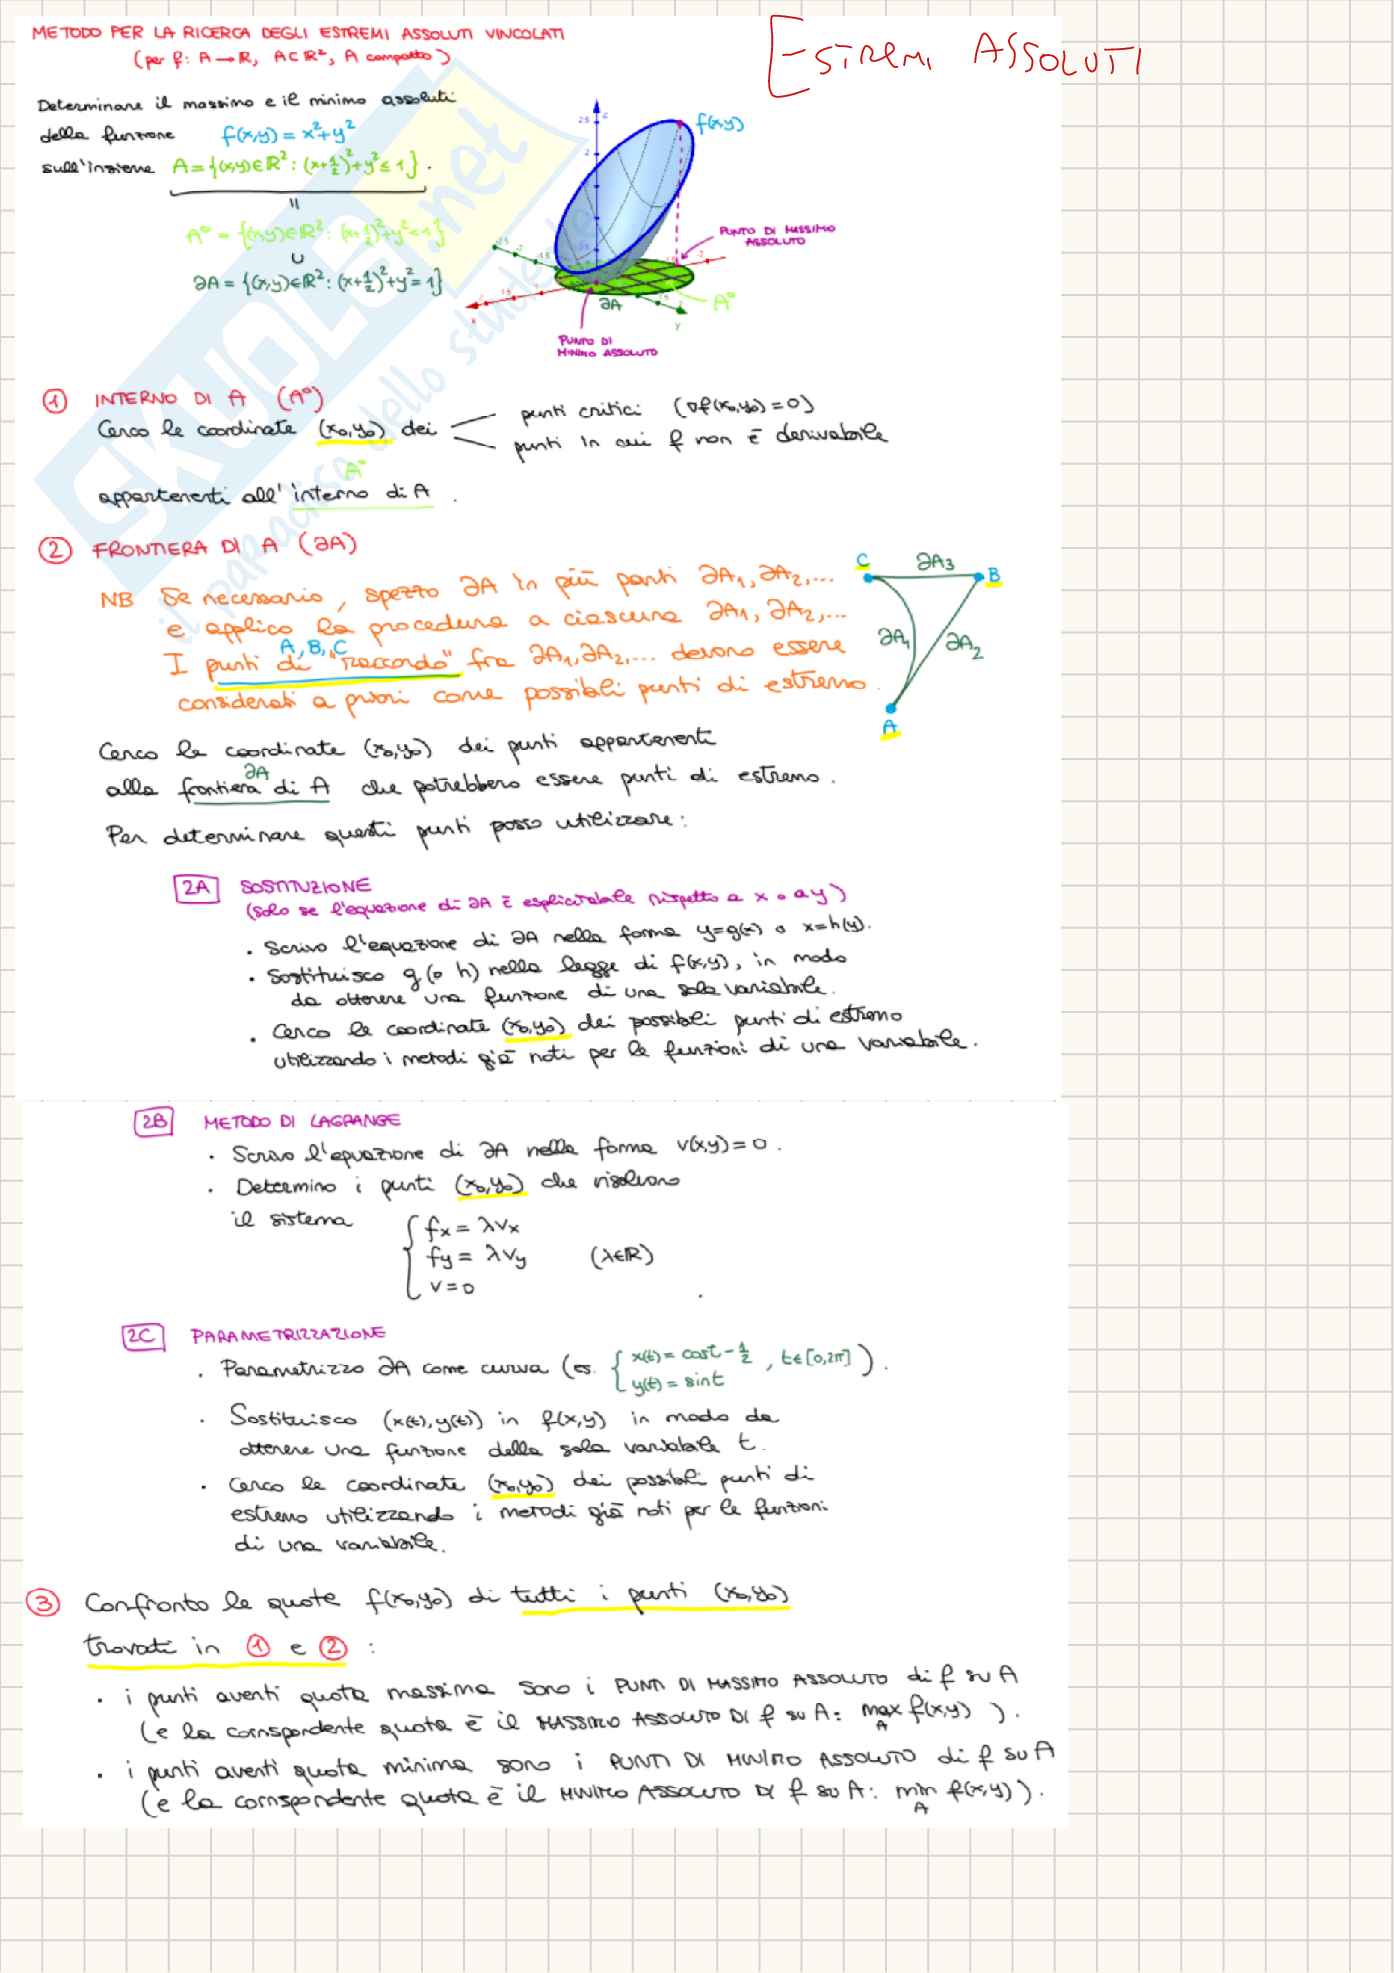 ESTREMI ASSOLUTI
METODO PER LA RICERCA DEGLI ESTREMI ASSOLUTI VINCOLATI
(per f: A→R, A⊂R², A compatto)
Determinare il massimo e il minimo assoluti
della funzione f(x,y) = x²+y²
sull'insieme A = {(x,y)∈R² : (x+1/2)²+y² ≤ 1}.
=
A° = {(x,y)∈R² : (x+1/2)²+y² < 1}
∪
∂A = {(x,y)∈R² : (x+1/2)²+y² = 1}
f(x,y)
PUNTO DI MASSIMO
ASSOLUTO
A°
∂A
PUNTO DI
MINIMO ASSOLUTO
2.5
2
x
y
z
① INTERNO DI A (A°)
Cerco le coordinate (x₀,y₀) dei
punti critici (∇f(x₀,y₀)=0)
punti in cui f non è derivabile
A°
appartenenti all'interno di A.
② FRONTIERA DI A (∂A)
NB Se necessario, spezzo ∂A in più parti ∂A₁, ∂A₂,...
e applico la procedura a ciascuna ∂A₁, ∂A₂,...
A, B, C
I punti di "raccordo" fra ∂A₁, ∂A₂,... devono essere
considerati a priori come possibili punti di estremo.
C ∂A₃ B
∂A₁ ∂A₂
A
Cerco le coordinate (x₀,y₀) dei punti appartenenti
∂A
alla frontiera di A che potrebbero essere punti di estremo.
Per determinare questi punti posso utilizzare:
2A SOSTITUZIONE
(solo se l'equazione di ∂A è esplicitabile rispetto a x o a y)
· Scrivo l'equazione di ∂A nella forma y=g(x) o x=h(y).
· Sostituisco g (o h) nella legge di f(x,y), in modo
da ottenere una funzione di una sola variabile.
· Cerco le coordinate (x₀,y₀) dei possibili punti di estremo
utilizzando i metodi già noti per le funzioni di una variabile.
2B METODO DI LAGRANGE
· Scrivo l'equazione di ∂A nella forma v(x,y)=0.
· Determino i punti (x₀,y₀) che risolvono
il sistema
{ fx = λvx
fy = λvy (λ∈R)
v=0
2C PARAMETRIZZAZIONE
· Parametrizzo ∂A come curva (es. { x(t) = cost - 1/2 , t∈[0,2π] ).
y(t) = sint
· Sostituisco (x(t),y(t)) in f(x,y) in modo da
ottenere una funzione della sola variabile t.
· Cerco le coordinate (x₀,y₀) dei possibili punti di
estremo utilizzando i metodi già noti per le funzioni
di una variabile.
③ Confronto le quote f(x₀,y₀) di tutti i punti (x₀,y₀)
trovati in ① e ② :
· i punti aventi quota massima sono i PUNTI DI MASSIMO ASSOLUTO di f su A
(e la corrispondente quota è il MASSIMO ASSOLUTO DI f su A: max f(x,y) ).
A
· i punti aventi quota minima sono i PUNTI DI MINIMO ASSOLUTO di f su A
(e la corrispondente quota è il MINIMO ASSOLUTO DI f su A: min f(x,y) ).
A
SKUOLA.net
il paradiso dello studente